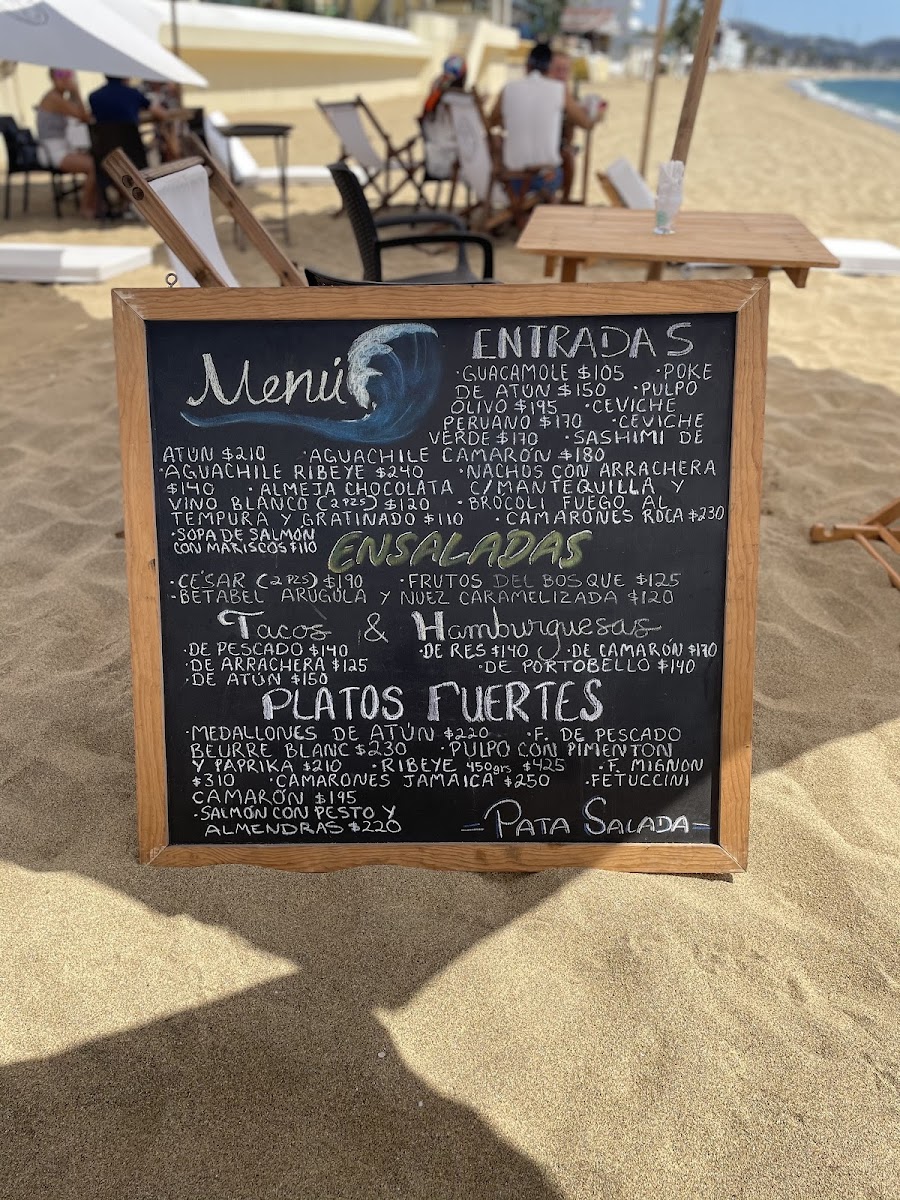 Menú
ENTRADAS
·GUACAMOLE $105 ·POKE
DE ATÚN $150 ·PULPO
OLIVO $195 ·CEVICHE
PERUANO $170 ·CEVICHE
VERDE $170 ·SASHIMI DE
ATÚN $210 ·AGUACHILE CAMARÓN $180
·AGUACHILE RIBEYE $240 ·NACHOS CON ARRACHERA
$140 ·ALMEJA CHOCOLATA C/MANTEQUILLA Y
VINO BLANCO (2 PZS) $120 ·BROCOLI FUEGO AL
TEMPURA Y GRATINADO $110 ·CAMARONES ROCA $230
·SOPA DE SALMÓN
CON MARISCOS $110
ENSALADAS
·CÉSAR (2 PZS) $190 ·FRUTOS DEL BOSQUE $125
·BETABEL ARUGULA Y NUEZ CARAMELIZADA $120
Tacos & Hamburguesas
·DE PESCADO $140 ·DE RES $140 ·DE CAMARÓN $170
·DE ARRACHERA $125 ·DE PORTOBELLO $140
·DE ATÚN $150
PLATOS FUERTES
·MEDALLONES DE ATÚN $220 ·F. DE PESCADO
BEURRE BLANC $230 ·PULPO CON PIMENTON
Y PAPRIKA $210 ·RIBEYE 450grs $425 ·F. MIGNON
$310 ·CAMARONES JAMAICA $250 ·FETUCCINI
CAMARÓN $195
·SALMÓN CON PESTO Y
ALMENDRAS $220
PATA SALADA